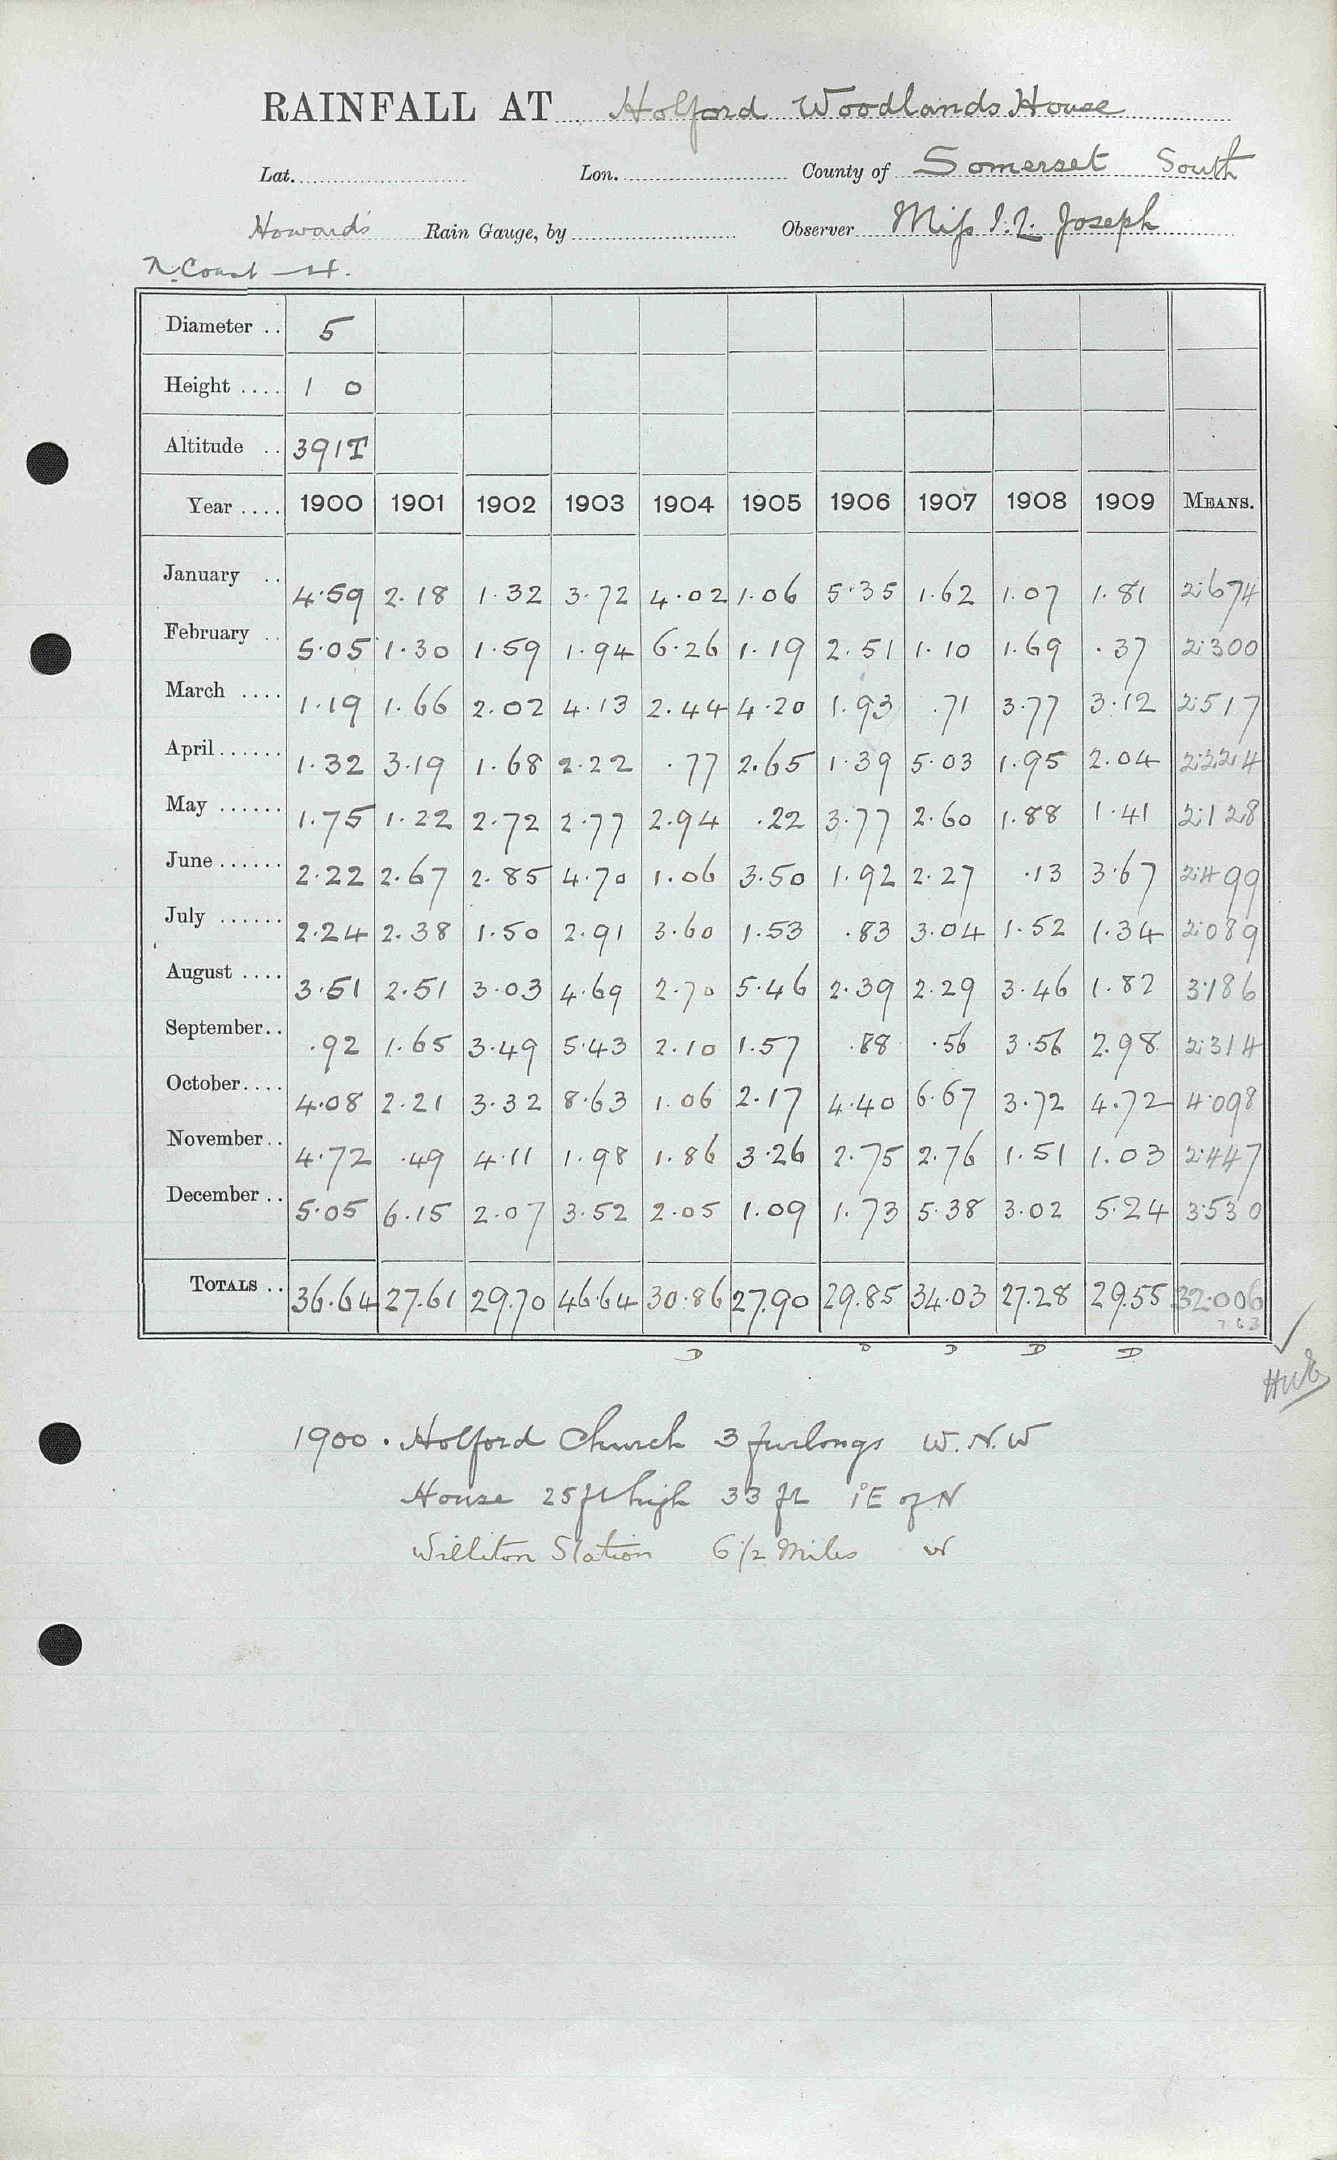 RAINFALL AT Holford Woodlands House
Lat. Lon. County of Somerset South
Howard's Rain Gauge, by Observer Miss I. L. Joseph
N. Coast — H.
Diameter .. 5
Height .... 1 0
Altitude .. 391T
Year .... 1900 1901 1902 1903 1904 1905 1906 1907 1908 1909 MEANS.
January .. 4.59 2.18 1.32 3.72 4.02 1.06 5.35 1.62 1.07 1.81 2.674
February .. 5.05 1.30 1.59 1.94 6.26 1.19 2.51 1.10 1.69 .37 2.300
March .... 1.19 1.66 2.02 4.13 2.44 4.20 1.93 .71 3.77 3.12 2.517
April...... 1.32 3.19 1.68 2.22 .77 2.65 1.39 5.03 1.95 2.04 2.224
May ...... 1.75 1.22 2.72 2.77 2.94 .22 3.77 2.60 1.88 1.41 2.128
June...... 2.22 2.67 2.85 4.70 1.06 3.50 1.92 2.27 .13 3.67 2.499
July ...... 2.24 2.38 1.50 2.91 3.60 1.53 .83 3.04 1.52 1.34 2.089
August .... 3.51 2.51 3.03 4.69 2.70 5.46 2.39 2.29 3.46 1.82 3.186
September.. .92 1.65 3.49 5.43 2.10 1.57 .88 .56 3.56 2.98 2.314
October.... 4.08 2.21 3.32 8.63 1.06 2.17 4.40 6.67 3.72 4.72 4.098
November.. 4.72 .49 4.11 1.98 1.86 3.26 2.75 2.76 1.51 1.03 2.447
December .. 5.05 6.15 2.07 3.52 2.05 1.09 1.73 5.38 3.02 5.24 3.530
TOTALS .. 36.64 27.61 29.70 46.64 30.86 27.90 29.85 34.03 27.28 29.55 32.006
D D D D D
1900 . Holford Church 3 furlongs W.N.W
House 25 ft high 33 ft E of N
Williton Station 6 1/2 Miles W